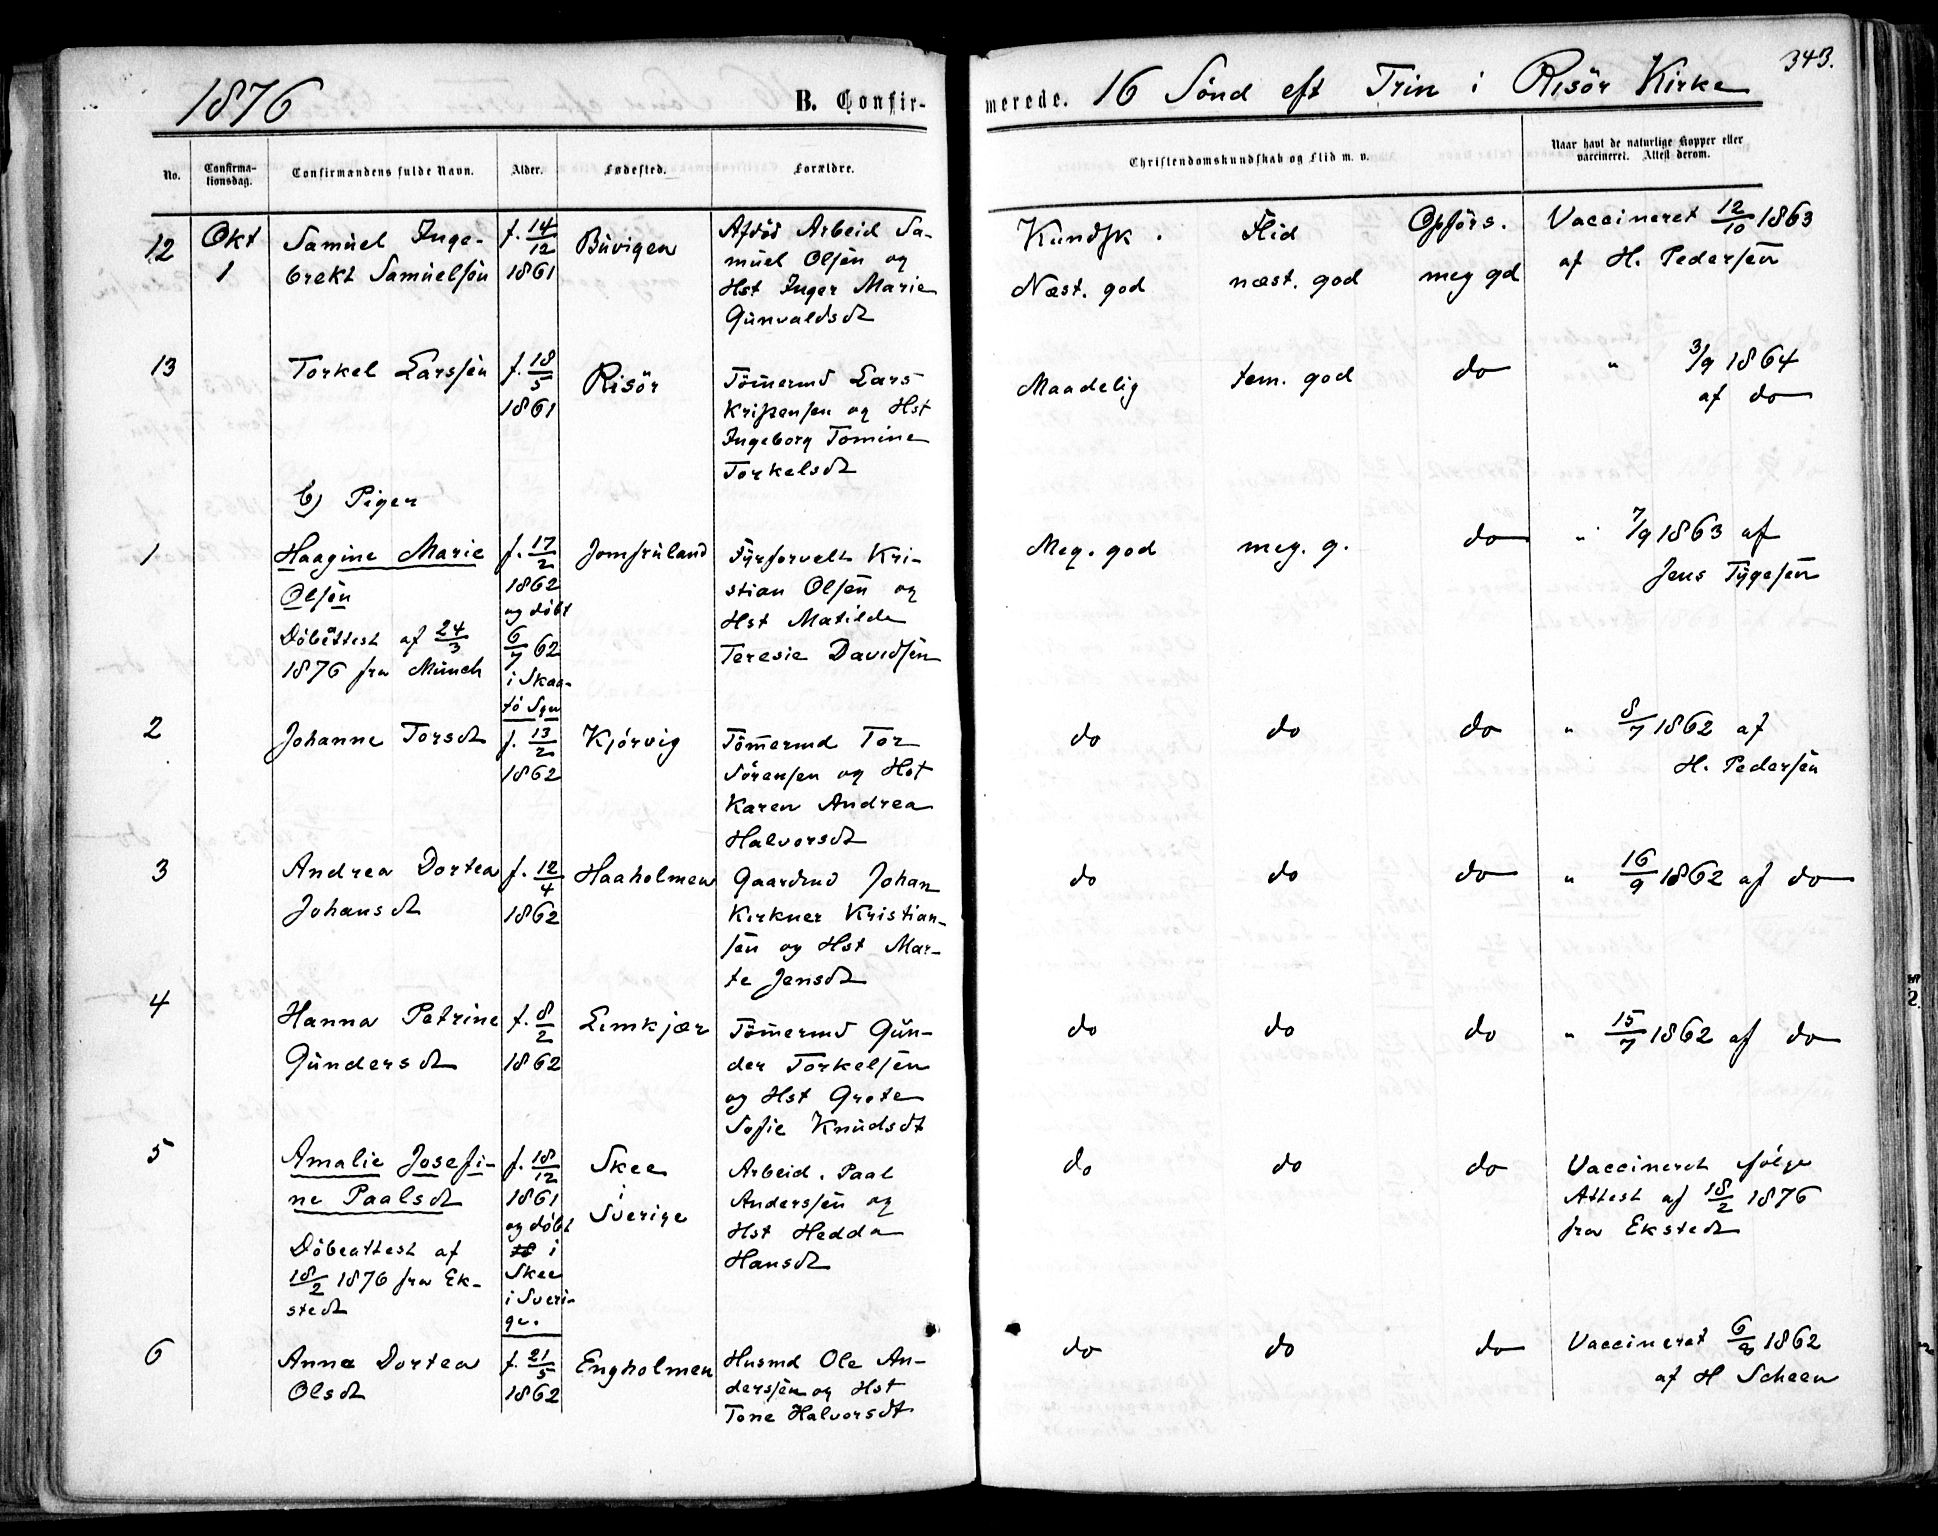 1876 B. Confirmerede. 16 Sönd eft Trin i Risör Kirke 343.
No. Confirmationsdag. Confirmandens fulde Navn. Alder. Fødested. Forældre. Christendomskundskab og Flid m. v. Naar havt de naturlige Kopper eller vaccineret. Attest derom.
12
Okt
1
Samuel Inge-
brekt Samuelsøn
f. 14/12
1861
Buvigen
Afdöd Arbeid Sa-
muel Olsen og
Hst Inger Marie
Gunvaldsdt
Kundsk. Flid Opförs.
Næst. god næst. god meg gd
Vaccineret 12/10 1863
af H. Pedersen
13
Torkel Larssen
f. 18/5
1861
Risör
Tömermd Lars
Kristensen og Hst
Ingeborg Tomine
Torkelsdt
Maadelig tem. god do
" 3/9 1864
af do
b) Piger
1
Haagine Marie
Olsen
Döbeattest af 24/3
1876 fra Münch
f. 17/2
1862
og döbt
6/7 62
i Skaa-
tö Sgn
Jomfruland
Fyrforvalt Kri-
stian Olsen og
Hst Matilde
Teresie Davidsen
Meg. god meg. g. do
" 7/9 1863 af
Jens Tygesen
2
Johanne Torsdt
f. 13/2
1862
Kjörvig
Tömermd Tor
Sörensen og Hst
Karen Andrea
Halvorsdt
do do do
" 8/7 1862 af
H. Pedersen
3
Andrea Dortea
Johansdt
f. 12/4
1862
Haaholmen
Gaardmd Johan
Kirkner Kristian-
sen og Hst Mar-
te Jensdt
do do do
" 16/9 1862 af do
4
Hanna Petrine
Gundersdt
f. 8/2
1862
Lemkjær
Tömermd Gun-
der Torkelsen
og Hst Grete
Sofie Knudsdt
do do do
" 15/7 1862 af do
5
Amalie Josefi-
ne Paalsdt
Döbeattest af
18/2 1876 fra Ek-
stedt
f. 18/12
1861
og döbt
i
Skee
i Sveri-
ge.
Skee
i
Sverige
Arbeid. Paal
Anderssen og
Hst Hedda
Hansdt
do do do
Vaccineret ifölge
Attest af 18/2 1876
fra Ekstedt
6
Anne Dortea
Olsdt
f. 21/5
1862
Engholmen
Husmd Ole An-
derssen og Hst
Tone Halvorsdt
do do do
Vaccineret 6/8 1862
af H Scheen